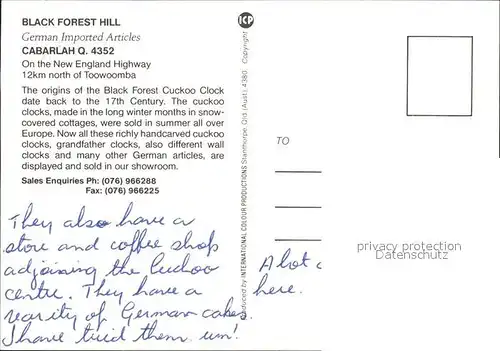 BLACK FOREST HILL
German Imported Articles
CABARLAH Q. 4352
On the New England Highway
12km north of Toowoomba
The origins of the Black Forest Cuckoo Clock
date back to the 17th Century. The cuckoo
clocks, made in the long winter months in snow-
covered cottages, were sold in summer all over
Europe. Now all these richly handcarved cuckoo
clocks, grandfather clocks, also different wall
clocks and many other German articles, are
displayed and sold in our showroom.
Sales Enquiries Ph: (076) 966288
Fax: (076) 966225
They also have a
store and coffee shop
adjoining the Cuckoo
centre. They have a
vearity of German cakes.
I have tried them um!
ICP
Produced by INTERNATIONAL COLOUR PRODUCTIONS Stanthorpe, Qld (Aust) 4380. Copyright
TO
privacy protection
Datenschutz
A lot
here.